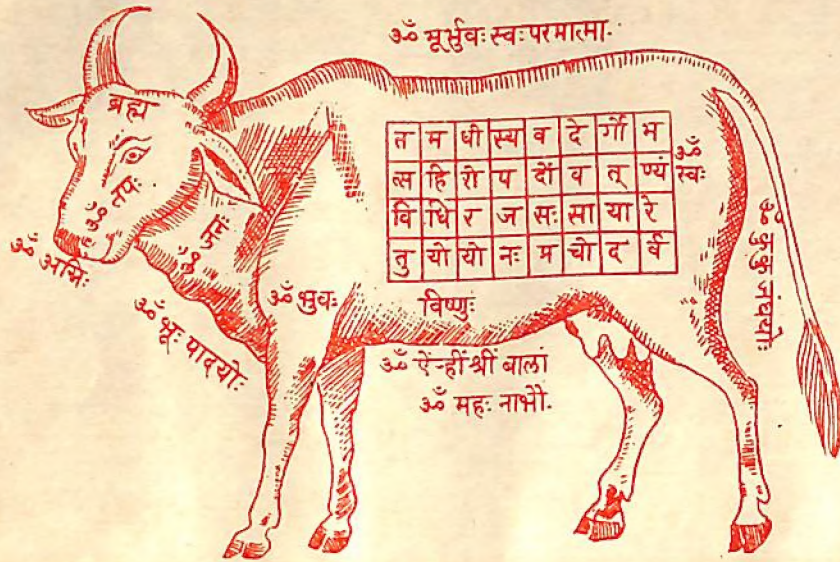 ॐ भूर्भुवः स्वः परमात्मा.
ब्रह्म
ॐ तपः
ॐ जनः
ॐ अग्निः
ॐ भूः पादयोः
ॐ भुवः
त म धी स्य व दे र्गो भ
त्स हि रो प दों व त् ण्यं
वि धि र ज सः सा या रे
तु यो यो नः प्र चो द र्व
ॐ स्वः
विष्णुः
ॐ ऐं-हीं श्रीं बालां
ॐ महः नाभौ.